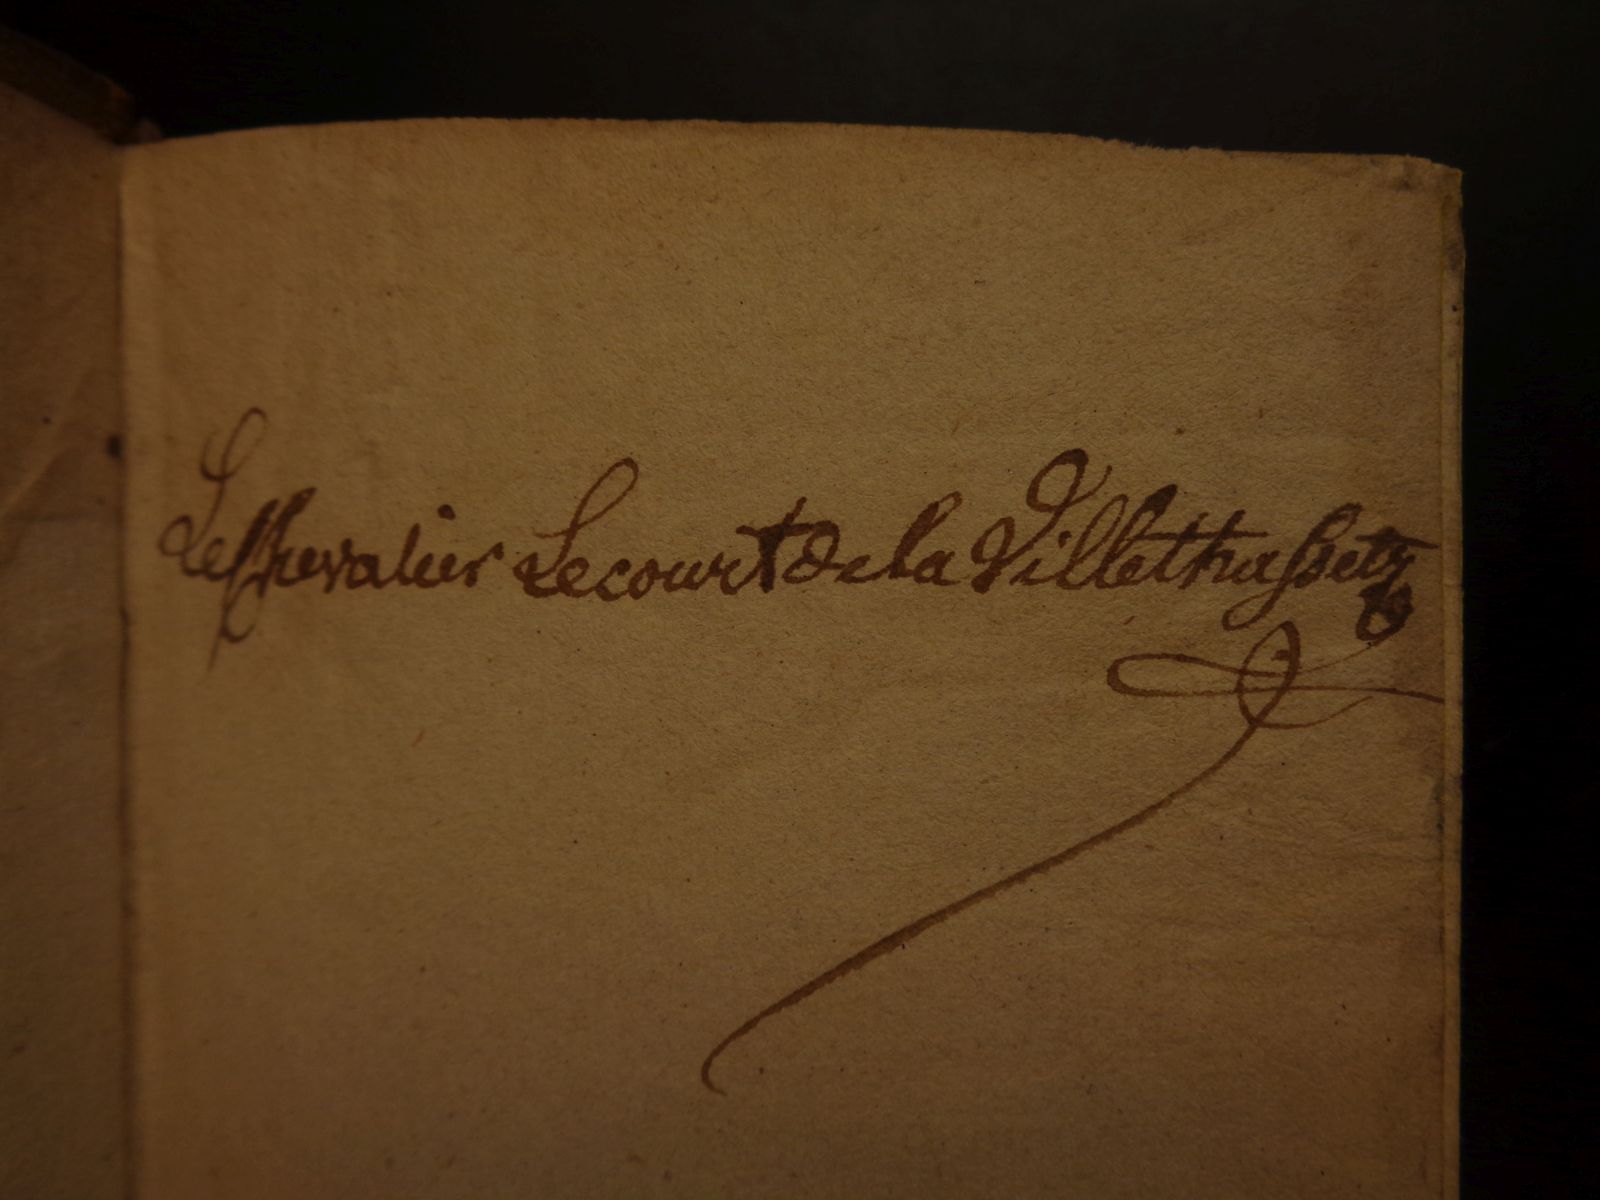 Le Chevalier Lecourt de la Villethassetz